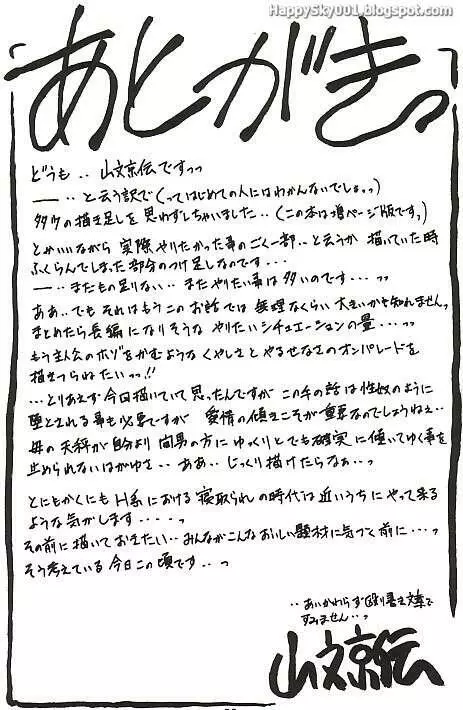 HappySky001.blogspot.com
あとがきっ
どうも‥山文京伝ですっっ
―‥と云う訳で(ってはじめての人にはわかんないでしょっっ)
多少の描き足しを思わずしちゃいました‥(この本は増ページ版ですっ)
とかいいながら 実際やりたかった事のごく一部‥と云うか 描いていた時
ふくらんでしまった部分のつけ足しなのです・・・
―‥まだもの足りない‥まだやりたい事は多いのです・・・っっ
ああ‥でもそれはもうこのお話では無理なくらい大きいかも知れませんっ
まとめたら長編になりそうな やりたいシチュエーションの量・・・・っっ
もう主人公のホゾをかむような くやしさと やるせなさのオンパレードを
描きつらねたいっっ!!
・・・とりあえず今回描いていて思ったんですが この手の話は性奴のように
堕とされる事も必要ですが 愛情の傾きこそが重要なのでしょうねえ‥
母の天秤が自分より間男の方に ゆっくりとでも確実に傾いてゆく事を
止められないはがゆさ‥ああ‥じっくり描けたらなぁ・・っ
とにもかくにも H系における寝取られの時代は近いうちにやって来る
ような気がします・・・・っ
その前に描いておきたい‥みんながこんなおいしい題材に気づく前に・・・っ
そう考えている今日この頃です‥っ
‥あいかわらず殴り書き文章で
すみません‥っ
山文京伝